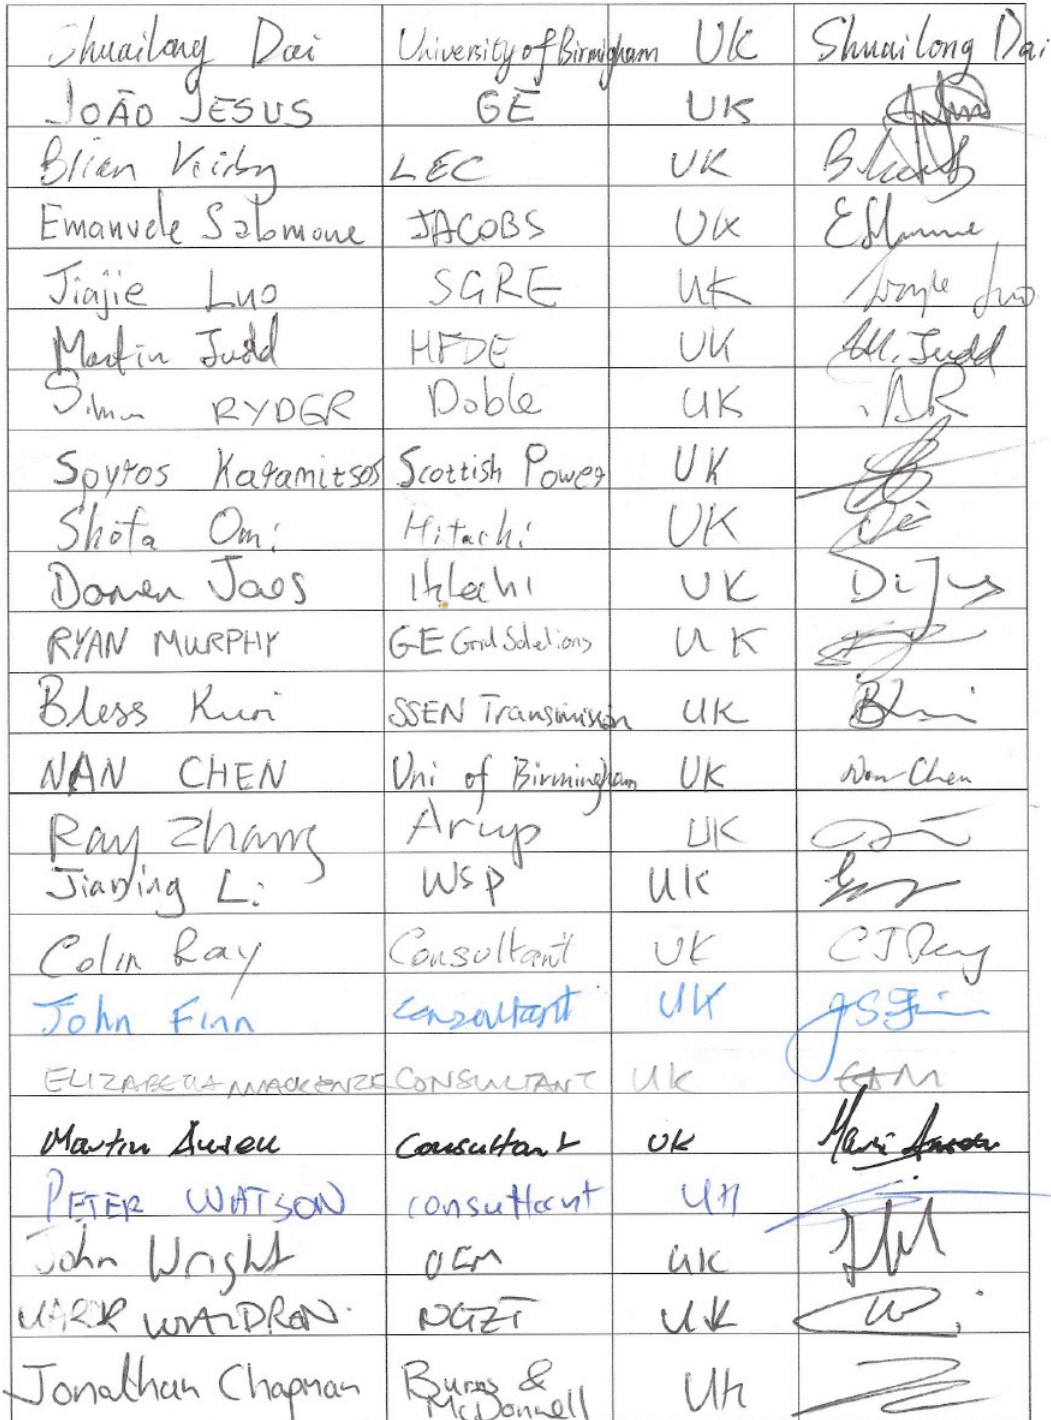 Shuailong Dai University of Birmigham UK Shuailong Dai
JOÃO JESUS GE UK
Brian Kirby LEC UK
Emanuele Salomone JACOBS UK
Jiajie Luo SGRE UK Jiajie Luo
Martin Judd HFDE UK M. Judd
Simon RYDER Doble UK
Spyros Karamitsos Scottish Power UK
Shota Omi Hitachi UK
Damen Jaes Hitachi UK
RYAN MURPHY GE Grid Solutions UK
Bless Kuri SSEN Transmission UK
NAN CHEN Uni of Birmingham UK Nan Chen
Ray Zhang Arup UK
Jianing Li WSP UK
Colin Ray Consultant UK CJ Ray
John Finn consultant UK JS Finn
ELIZABETH MACKENZIE CONSULTANT UK
Martin Ansell Consultant UK
PETER WATSON consultant UK
John Wright OEM UK
MARK WALDRON NGET UK
Jonathan Chapman Burns & UK
McDonnell